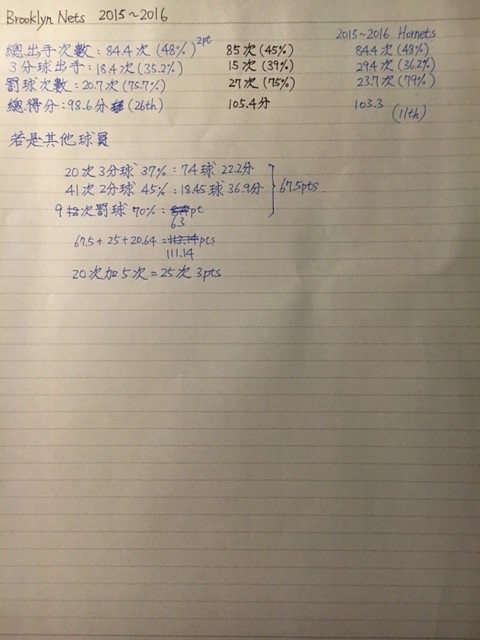 Brooklyn Nets 2015~2016
2015~2016 Hornets
總出手次數:84.4次(48%)2pt 85次(45%) 84.4次(48%)
3分球出手:18.4次(35.2%) 15次(39%) 29.4次(36.2%)
罰球次數:20.7次(75.7%) 27次(75%) 23.7次(79%)
總得分:98.6分(26th) 105.4分 103.3
(11th)
若是其他球員
20次3分球37%:7.4球 22.2分
41次2分球45%:18.45球 36.9分 67.5pts
9次罰球70%=pt
6.3
67.5+25+20.64=113.14pts
111.14
20次加5次=25次3pts